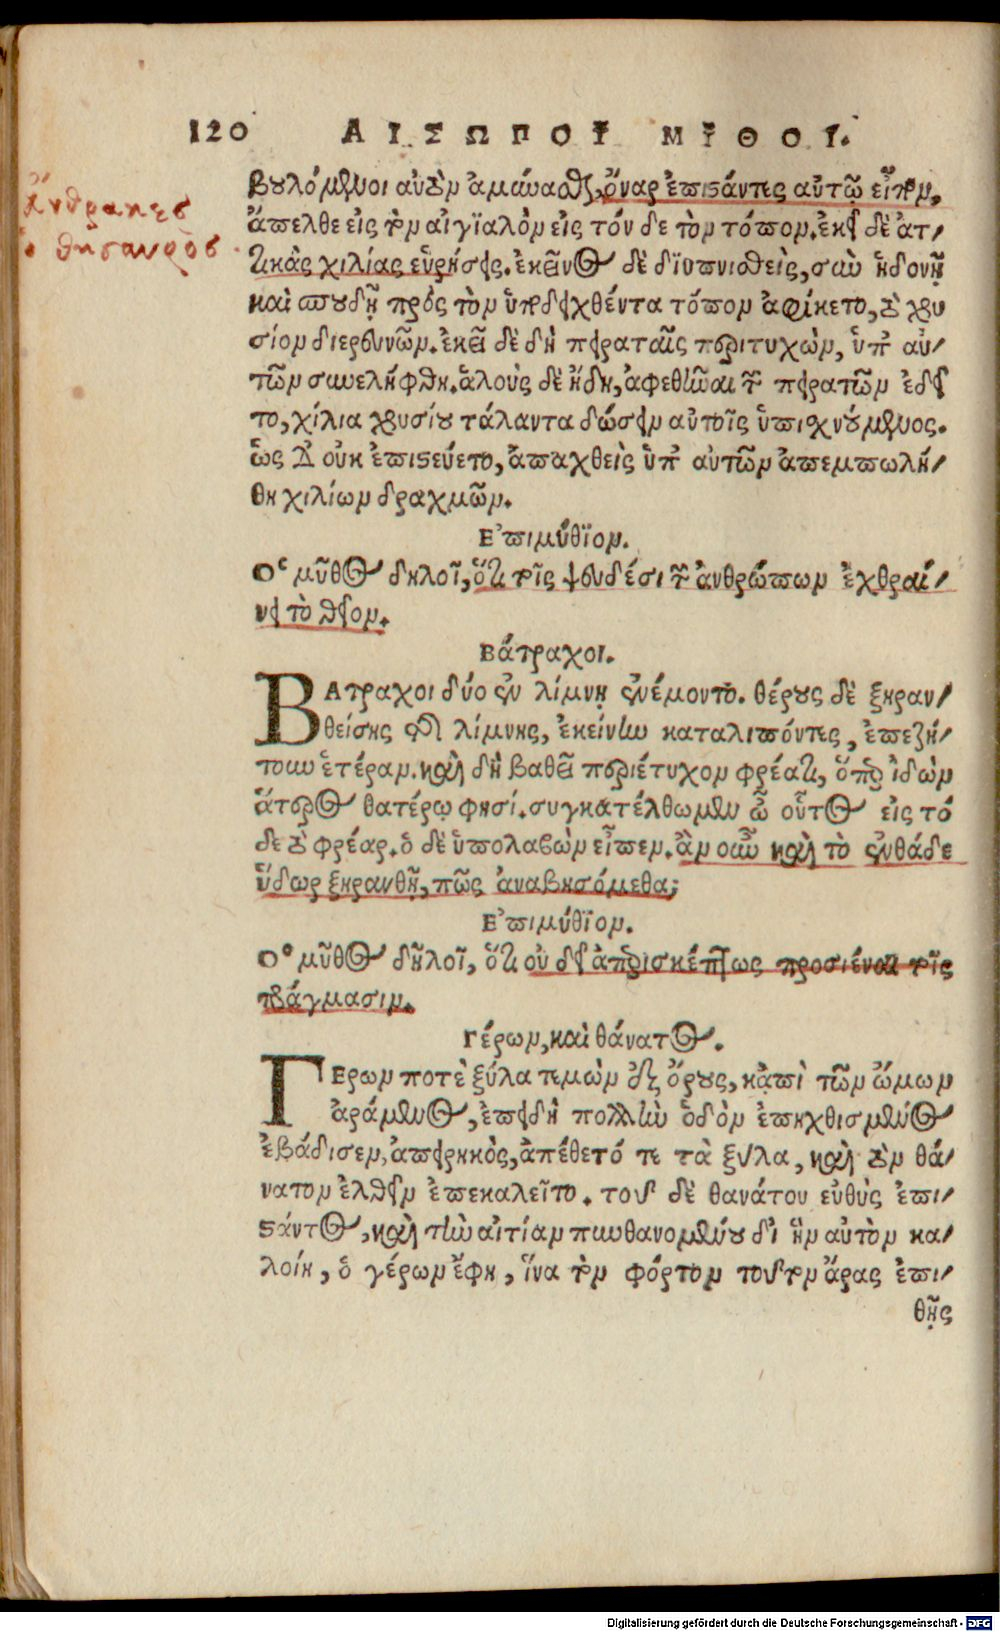 120 ΑΙΣΩΠΟΥ ΜΥΘΟΙ.
Ἄνθρακες
ὁ θησαυρὸς
βουλόμενοι αὐτὸν ἀμύνασθαι, ὄναρ ἐπιστάντες αὐτῷ εἶπον,
ἄπελθε εἰς τὸν αἰγϊαλὸν εἰς τόν δε τὸν τόπον. ἐκεῖ δὲ ἀτ/
τικὰς χιλίας εὑρήσεις. ἐκεῖνος δὲ δϊυπνισθεὶς, σὺν ἡδονῇ
καὶ σπουδῇ πρὸς τὸν ὑποδειχθέντα τόπον ἀφίκετο, τὸ χρυ
σίον διερευνῶν. ἐκεῖ δὲ δὴ πειραταῖς περιτυχὼν, ὑπ' αὐ/
τῶν συνελήφθη. ἁλοὺς δὲ ἤδη, ἀφεθῆναι τῶν πειρατῶν ἐδεῖ
το, χίλια χρυσίου τάλαντα δώσειν αὐτοῖς ὑπισχνούμενος.
ὡς δ' οὐκ ἐπιστεύετο, ἀπαχθεὶς ὑπ' αὐτῶν ἀπεμπωλή/
θη χιλίων δραχμῶν.
Ἐπιμύθϊον.
Ὁ μῦθος δηλοῖ, ὅτι τοῖς ψευδέσι τῶν ἀνθρώπων ἐχθραί/
νει τὸ θεῖον.
Βάτραχοι.
ΒΑτραχοι δύο ἐν λίμνῃ ἐνέμοντο. θέρους δὲ ξηραν/
θείσης τῆς λίμνης, ἐκείνην καταλιπόντες, ἐπεζή/
τουν ἑτέραν. καὶ δὴ βαθεῖ περιέτυχον φρέατι, ὅπερ ἰδὼν
ἅτερος θατέρῳ φησί. συγκατέλθωμεν ὦ οὗτος εἰς τό
δε τὸ φρέαρ. ὁ δὲ ὑπολαβὼν εἶπεν. ἂν οὖν καὶ τὸ ἐνθάδε
ὕδωρ ξηρανθῇ, πῶς ἀναβησόμεθα;
Ἐπιμύθϊον.
Ὁ μῦθος δηλοῖ, ὅτι οὐ δεῖ ἀπερισκέπτως προσιέναι τοῖς
πράγμασιν.
Γέρων, καὶ θάνατος.
ΓΕρων ποτὲ ξύλα τεμὼν ἐξ ὄρους, κἀπὶ τῶν ὤμων
ἀράμενος, ἐπειδὴ πολλὴν ὁδὸν ἐπηχθισμένος
ἐβάδισεν, ἀπειρηκὸς, ἀπέθετό τε τὰ ξύλα, καὶ τὸν θά/
νατον ἐλθεῖν ἐπεκαλεῖτο. τοῦ δὲ θανάτου εὐθὺς ἐπι/
στάντος, καὶ τὴν αἰτίαν πυνθανομένου δι' ἣν αὐτὸν κα/
λοίη, ὁ γέρων ἔφη, ἵνα τὸν φόρτον τοῦτον ἄρας ἐπι/
θῇς
Digitalisierung gefördert durch die Deutsche Forschungsgemeinschaft - DFG